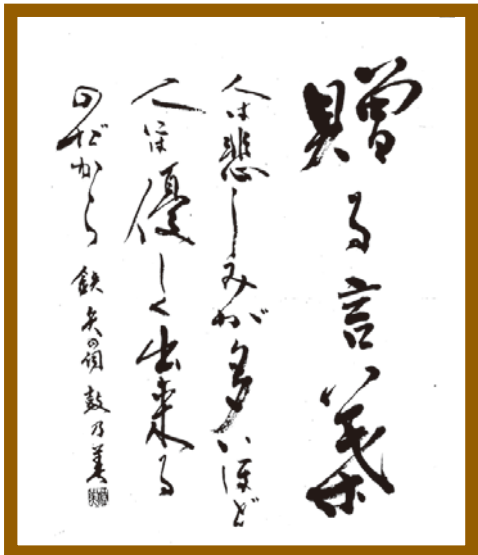 贈る言葉
人は悲しみが多いほど
人には優しく出来る
のだから 鉄矢の詞 鼓乃美